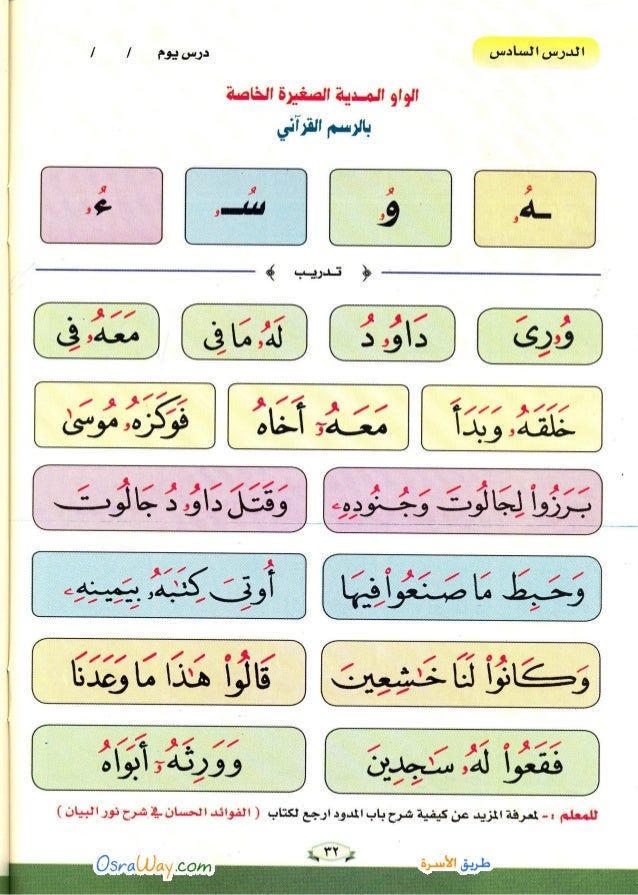 الدرس السادس
درس يوم / /
الواو المدية الصغيرة الخاصة
بالرسم القرآني
ـهُۥ وُۥ سُـۥ ءُۥ
تدريب
وُۥرِىَ دَاوُۥدُ لَهُۥ مَا فِى مَعَهُۥ فِى
خَلَقَهُۥ وَبَدَأَ مَعَهُۥٓ أَخَاهُ فَوَكَزَهُۥ مُوسَىٰ
بَرَزُوا۟ لِجَالُوتَ وَجُنُودِهِۦ وَقَتَلَ دَاوُۥدُ جَالُوتَ
وَحَبِطَ مَا صَنَعُوا۟ فِيهَا أُوتِىَ كِتَـٰبَهُۥ بِيَمِينِهِۦ
وَكَانُوا۟ لَنَا خَـٰشِعِينَ قَالُوا۟ هَـٰذَا مَا وَعَدَنَا
فَقَعُوا۟ لَهُۥ سَـٰجِدِينَ وَوَرِثَهُۥٓ أَبَوَاهُ
للمعلم :- لمعرفة المزيد عن كيفية شرح باب المدود ارجع لكتاب ( الفوائد الحسان في شرح نور البيان )
طريق الأسرة ٣٢ OsraWay.com